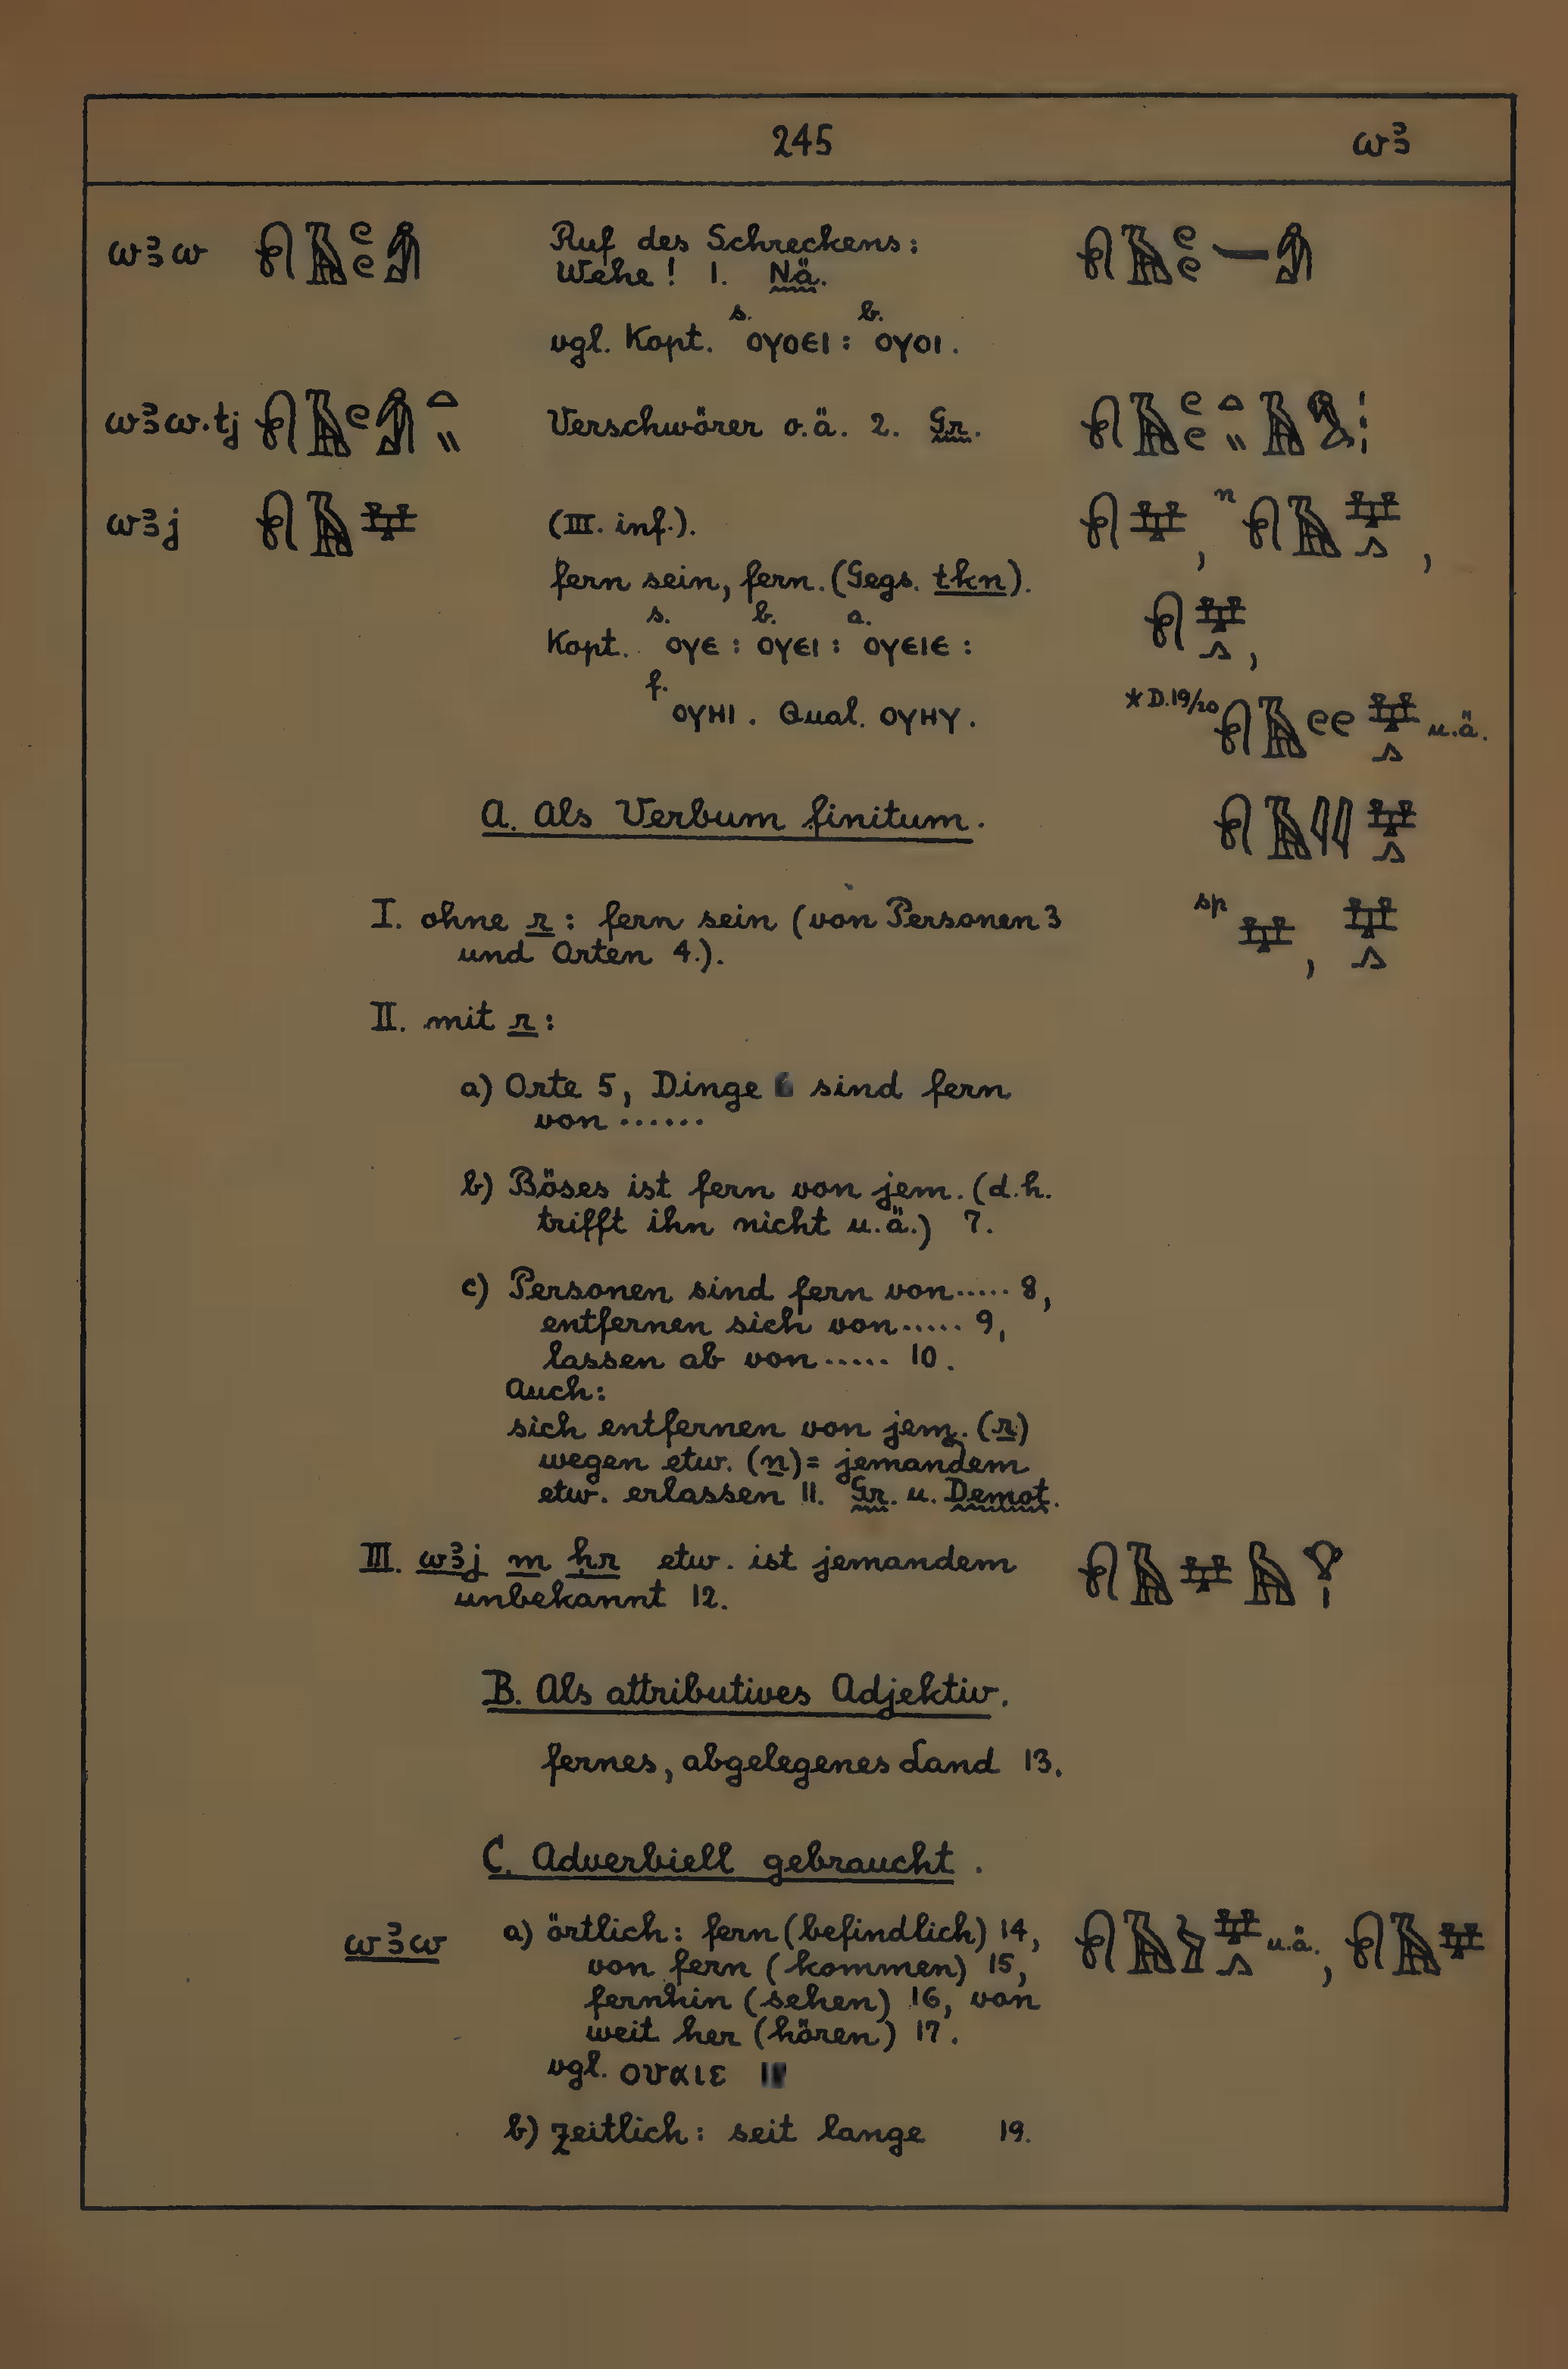 245 wꜣ
wꜣw 𓍯𓄿𓏲𓏲𓀁 Ruf des Schreckens:
Wehe! 1. Nä.
vgl. Kopt. s. ⲟⲩⲟⲉⲓ : b. ⲟⲩⲟⲓ.
wꜣw.tj Verschwörer o.ä. 2. Gr.
wꜣj (III. inf.).
fern sein, fern. (Gegs. tkn).
Kopt. s. ⲟⲩⲉ : b. ⲟⲩⲉⲓ : a. ⲟⲩⲉⲓⲉ :
f. ⲟⲩⲏⲓ. Qual. ⲟⲩⲏⲩ.
*D.19/20 u.ä.
A. Als Verbum finitum.
I. ohne r: fern sein (von Personen 3 sp
und Orten 4.).
II. mit r:
a) Orte 5, Dinge sind fern
von ......
b) Böses ist fern von jem. (d.h.
trifft ihn nicht u.ä.) 7.
c) Personen sind fern von ..... 8,
entfernen sich von ..... 9,
lassen ab von ..... 10.
Auch:
sich entfernen von jem. (r)
wegen etw. (n) = jemandem
etw. erlassen 11. Gr. u. Demot.
III. wꜣj m ḥr etw. ist jemandem
unbekannt 12.
B. Als attributives Adjektiv.
fernes, abgelegenes Land 13.
C. Adverbiell gebraucht.
wꜣw a) örtlich: fern (befindlich) 14, u.ä.,
von fern (kommen) 15,
fernhin (sehen) 16, von
weit her (hören) 17.
vgl. ουαιε
b) zeitlich: seit lange 19.